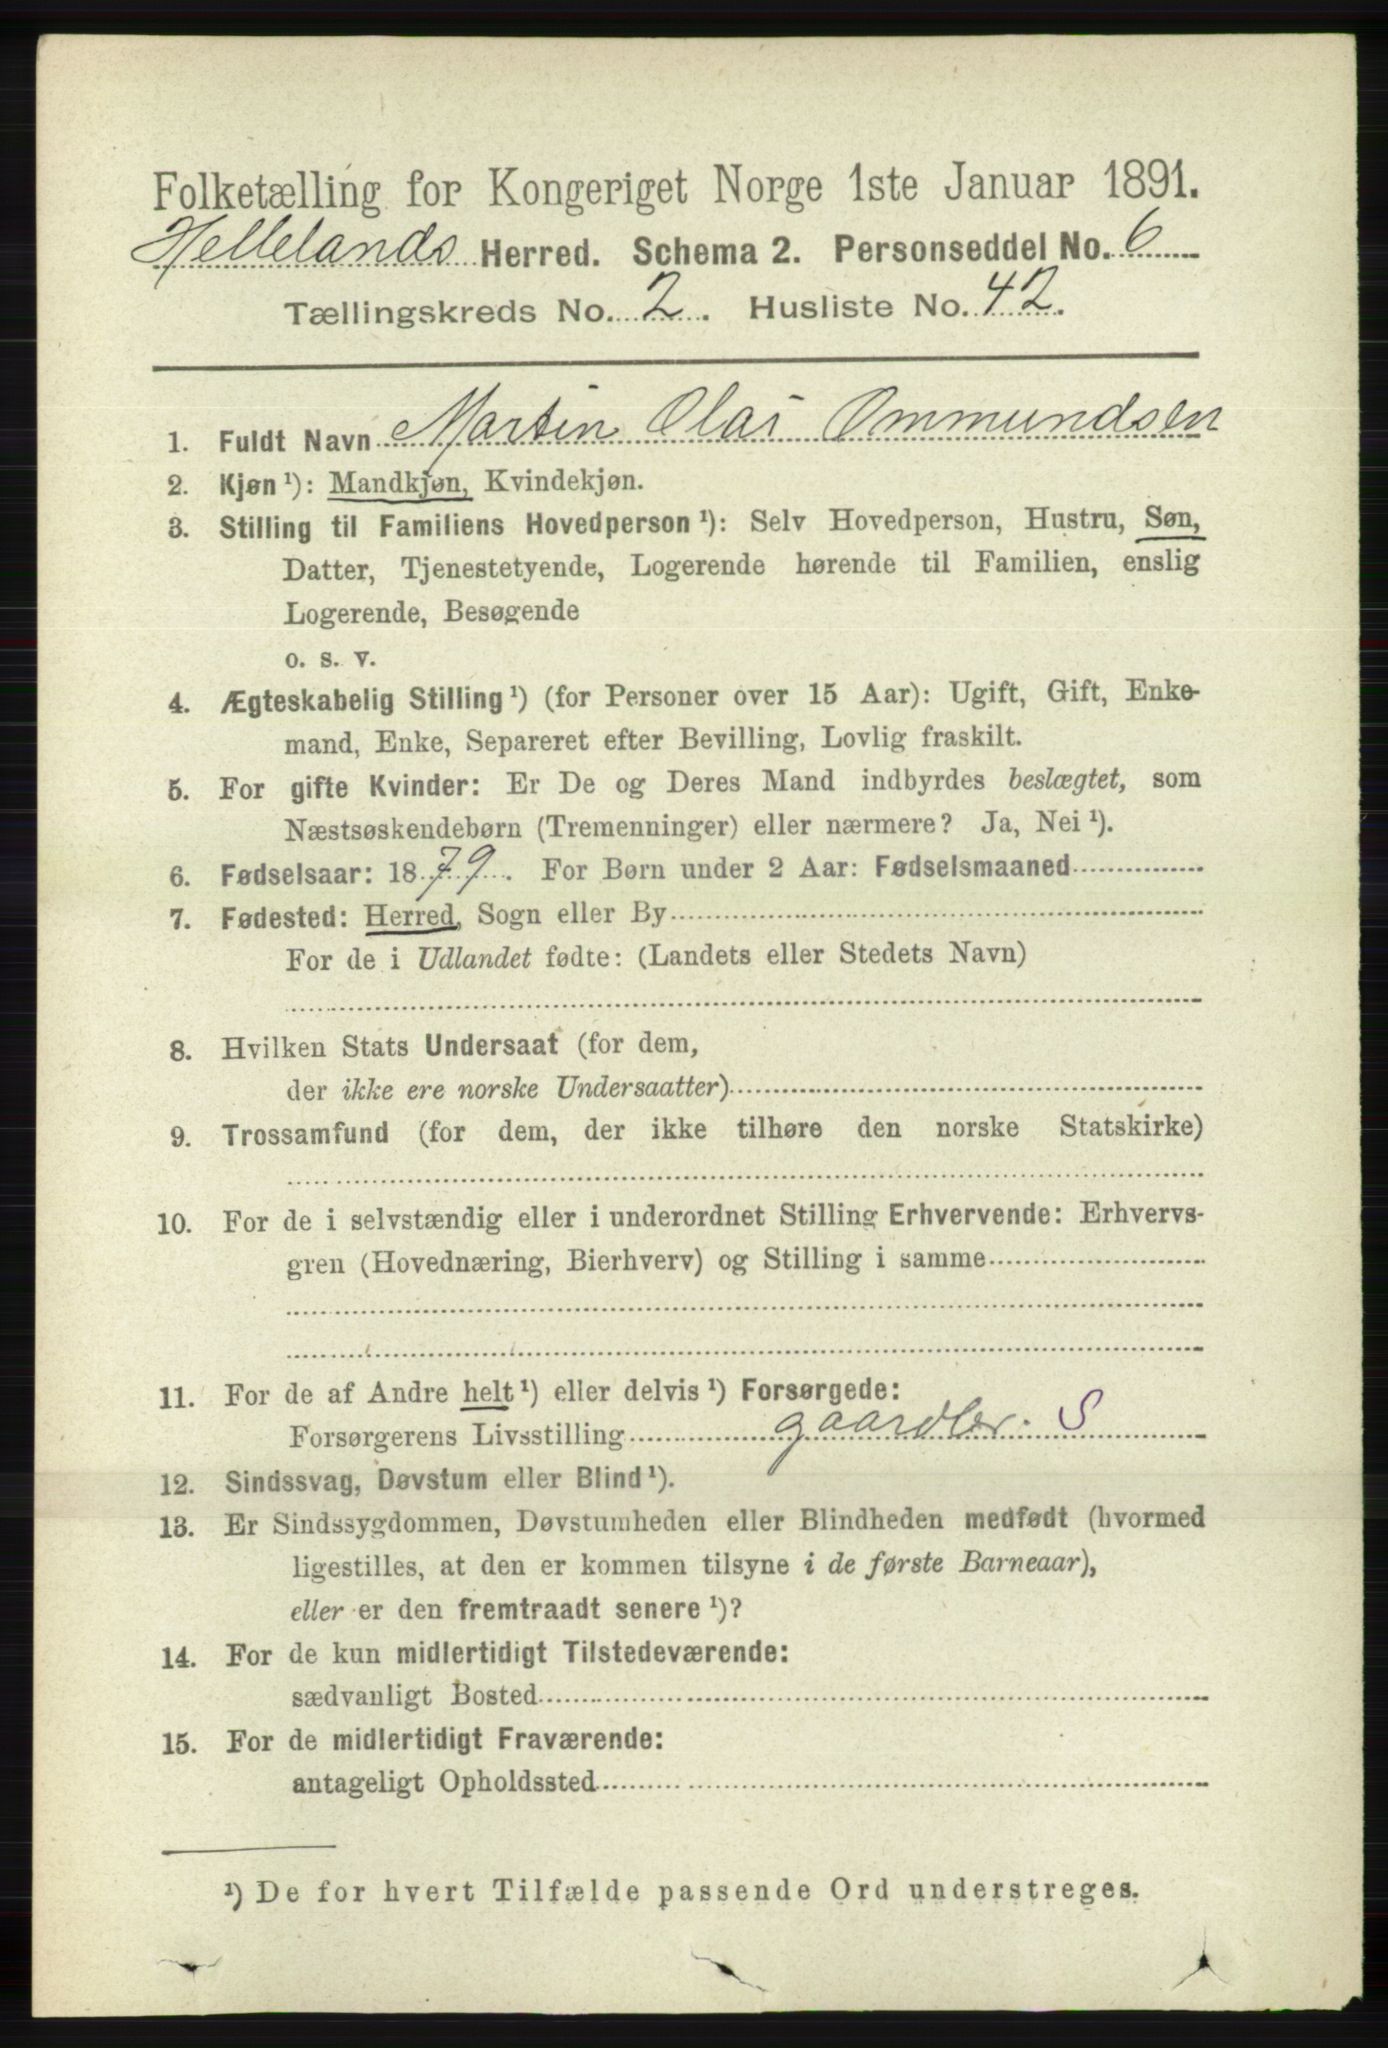 Folketælling for Kongeriget Norge 1ste Januar 1891.
Hellelands Herred. Schema 2. Personseddel No. 6
Tællingskreds No. 2. Husliste No. 42.
1. Fuldt Navn Martin Olai Ommundsen
2. Kjøn ¹): Mandkjøn, Kvindekjøn.
3. Stilling til Familiens Hovedperson ¹): Selv Hovedperson, Hustru, Søn,
Datter, Tjenestetyende, Logerende hørende til Familien, enslig
Logerende, Besøgende
o. s. v.
4. Ægteskabelig Stilling ¹) (for Personer over 15 Aar): Ugift, Gift, Enke-
mand, Enke, Separeret efter Bevilling, Lovlig fraskilt.
5. For gifte Kvinder: Er De og Deres Mand indbyrdes beslægtet, som
Næstsøskendebørn (Tremenninger) eller nærmere? Ja, Nei ¹).
6. Fødselsaar: 1879. For Børn under 2 Aar: Fødselsmaaned
7. Fødested: Herred, Sogn eller By
For de i Udlandet fødte: (Landets eller Stedets Navn)
8. Hvilken Stats Undersaat (for dem,
der ikke ere norske Undersaatter)
9. Trossamfund (for dem, der ikke tilhøre den norske Statskirke)
10. For de i selvstændig eller i underordnet Stilling Erhvervende: Erhvervs-
gren (Hovednæring, Bierhverv) og Stilling i samme
11. For de af Andre helt ¹) eller delvis ¹) Forsørgede:
Forsørgerens Livsstilling gaardbr. S
12. Sindssvag, Døvstum eller Blind ¹).
13. Er Sindssygdommen, Døvstumheden eller Blindheden medfødt (hvormed
ligestilles, at den er kommen tilsyne i de første Barneaar),
eller er den fremtraadt senere ¹)?
14. For de kun midlertidigt Tilstedeværende:
sædvanligt Bosted
15. For de midlertidigt Fraværende:
antageligt Opholdssted
¹) De for hvert Tilfælde passende Ord understreges.